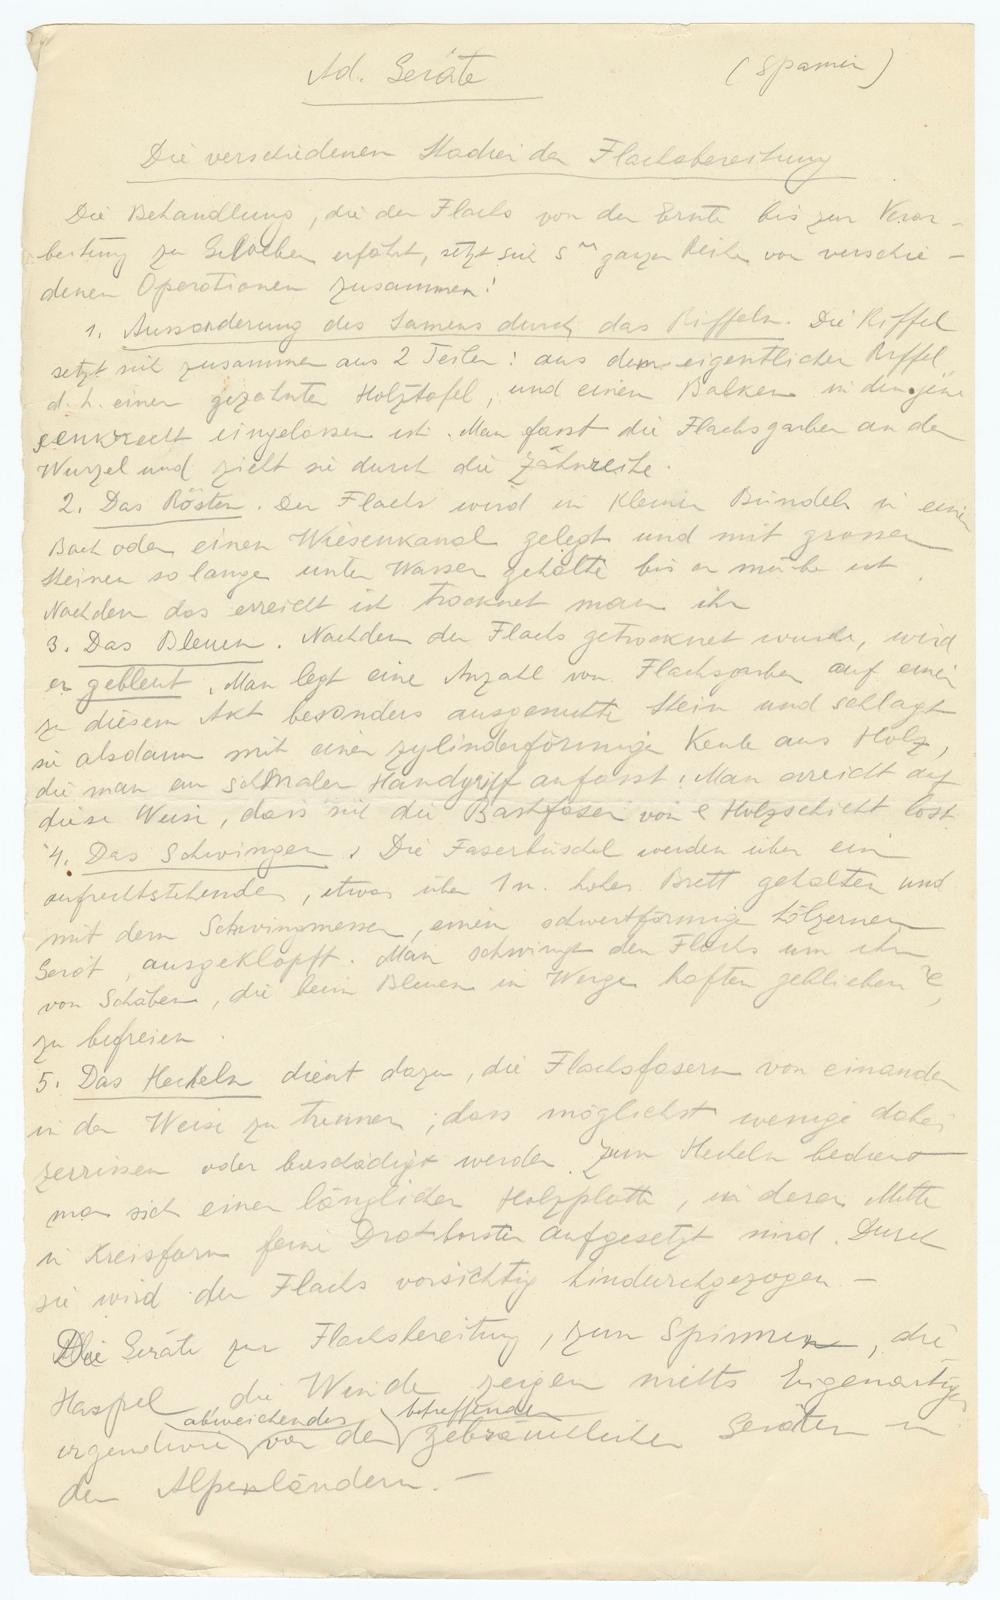 Ad. Geräte (Spamin)
Die verschiedenen Stadien der Flachsbereitung
Die Behandlung, die der Flachs von der Ernte bis zur Verar-
beitung zu Geweben erfährt, setzt sich ganzen Reihe von verschie-
denen Operationen zusammen:
1. Aussonderung des Samens durch das Riffeln. Die Riffel
setzt sich zusammen aus 2 Teilen: aus dem eigentlichen Riffel,
d. h. einer gezahnten Holztafel, und einem Balken in den jene
senkrecht eingelassen ist. Man fasst die Flachsgarben an der
Wurzel und zieht sie durch die Zähnreihe.
2. Das Rösten. Der Flachs wird in kleinen Bündeln in einen
Bach oder einen Wiesenkanal gelegt und mit grossen
Steinen so lange unter Wasser gehalten bis er mürbe ist.
Nachdem das erreicht ist trocknet man ihn
3. Das Bleuen. Nachdem der Flachs getrocknet wurde, wird
er gebleut. Man legt eine Anzahl von Flachsgarben auf einen
zu diesem Akt besonders ausgesuchten Stein und schlägt
sie alsdann mit einer zylinderförmigen Keule aus Holz,
die man am schmalen Handgriff anfasst. Man erreicht auf
diese Weise, dass sich die Bastfaser von Holzschicht löst.
4. Das Schwingen. Die Faserbüschel werden über ein
aufrechtstehendes, etwas über 1 m. hohes Brett gehalten und
mit dem Schwingmesser, einem schwertförmigen hölzernen
Gerät, ausgeklopft. Man schwingt den Flachs um ihn
von Schäben, die beim Bleuen in Werge haften geblieben,
zu befreien.
5. Das Hecheln dient dazu, die Flachsfasern von einander
in der Weise zu trennen, dass möglichst wenige dabei
zerrissen oder beschädigt werden. Zum Hecheln bedient
man sich einer länglichen Holzplatte, in deren Mitte
in Kreisform feine Drahtborsten aufgesetzt sind. Durch
sie wird der Flachs vorsichtig hindurchgezogen. –
Die Geräte zur Flachsbereitung, zum Spinnen, die
Haspel, die Winde zeigen nichts Eigenartiges
irgendwie abweichendes von den betreffenden gebräuchlichen Geräten in
den Alpenländern. –